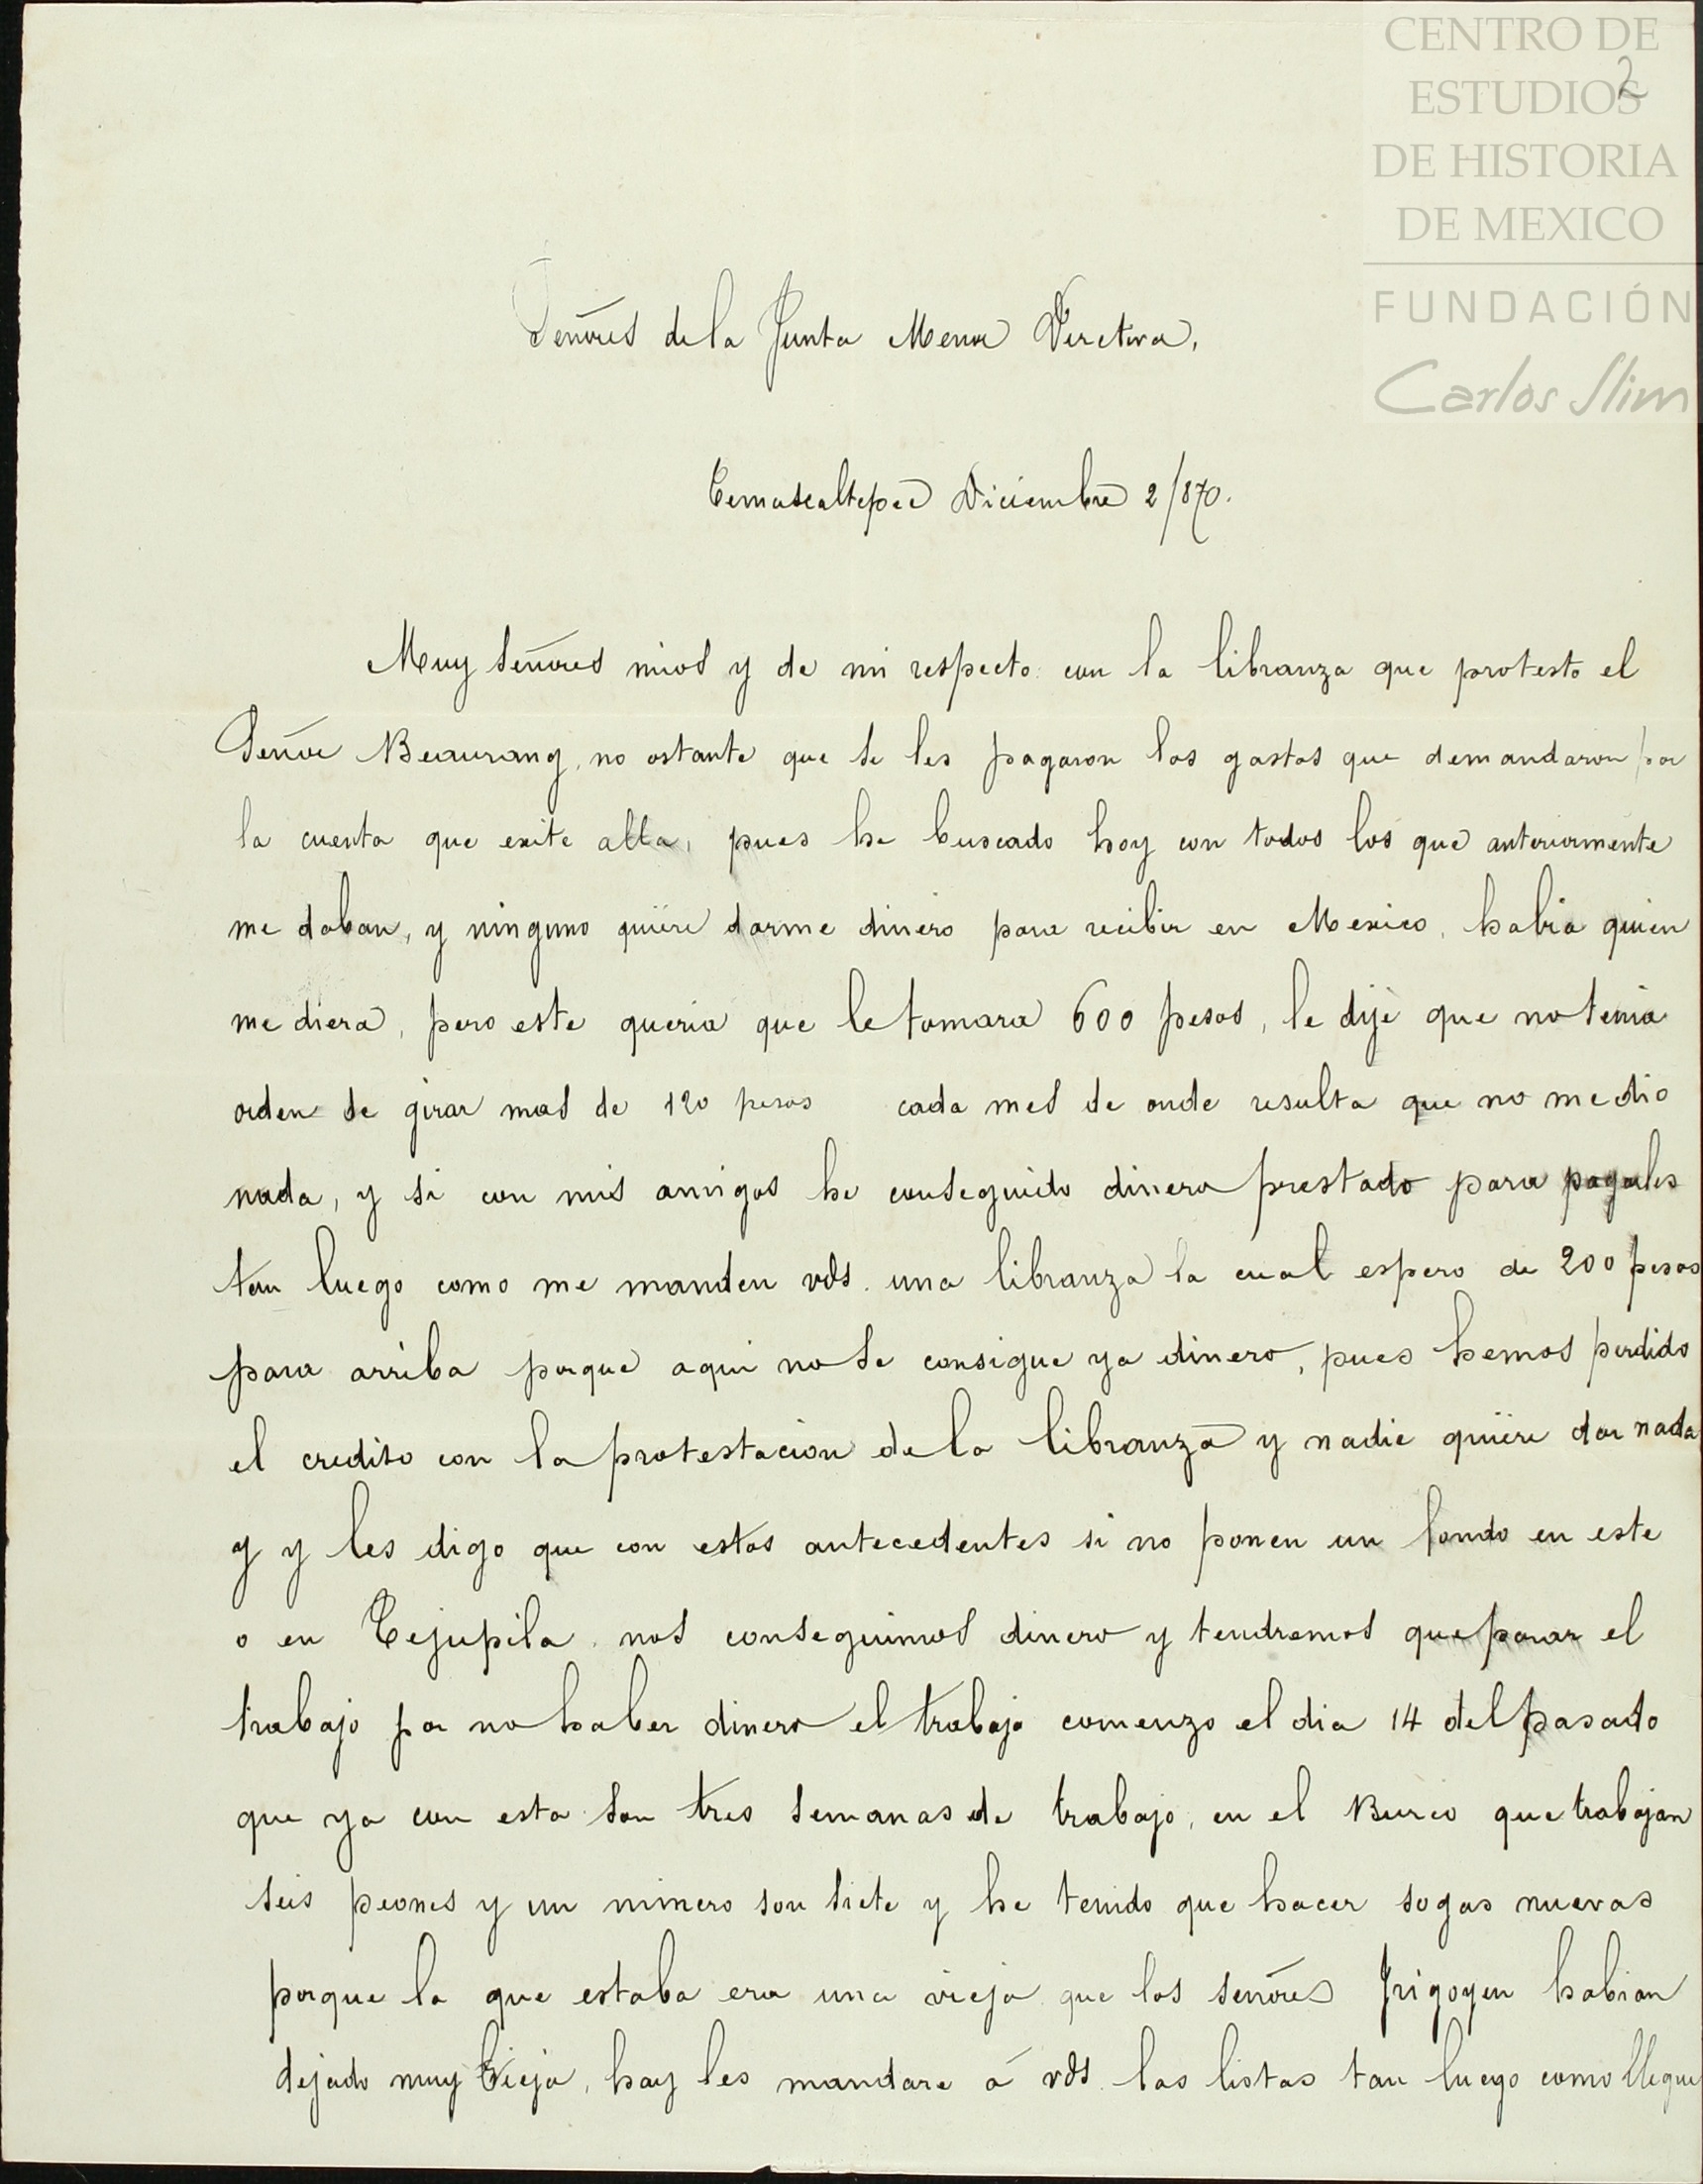 CENTRO DE
ESTUDIOS
DE HISTORIA
DE MEXICO
FUNDACIÓN
Carlos Slim
2
Señores de la Junta Menor Diretiva,
Temascaltepec Diciembre 2/870.
Muy Señores mios y de mi respecto: con la libranza que protesto el
Señor Beaurang, no ostante que se les pagaron los gastos que demandaron por
la cuenta que exite alla, pues he buscado hoy con todos los que anteriormente
me daban, y ninguno quiere darme dinero para recibir en Mexico, habia quien
me diera, pero este queria que le tomara 600 pesos, le dije que no tenia
orden de girar mas de 120 pesos cada mes de onde resulta que no me dio
nada, y si con mis amigos he conseguido dinero prestado para pagales
tan luego como me manden vds. una libranza la cual espero de 200 pesos
para arriba porque aqui no se consigue ya dinero, pues hemos perdido
el credito con la protestacion de la libranza y nadie quiere dar nada
y y les digo que con estos antecedentes si no ponen un fondo en este
o en Tejupila. nos conseguimos dinero y tendremos que parar el
trabajo por no haber dinero el trabajo comenzo el dia 14 del pasado
que ya con esta son tres semanas de trabajo, en el Burco que trabajan
seis peones y un minero son siete y he tenido que hacer sogas nuevas
porque la que estaba era una vieja que los señores Irigoyen habian
dejado muy bieja, hay les mandare á vds. las listas tan luego como llegue